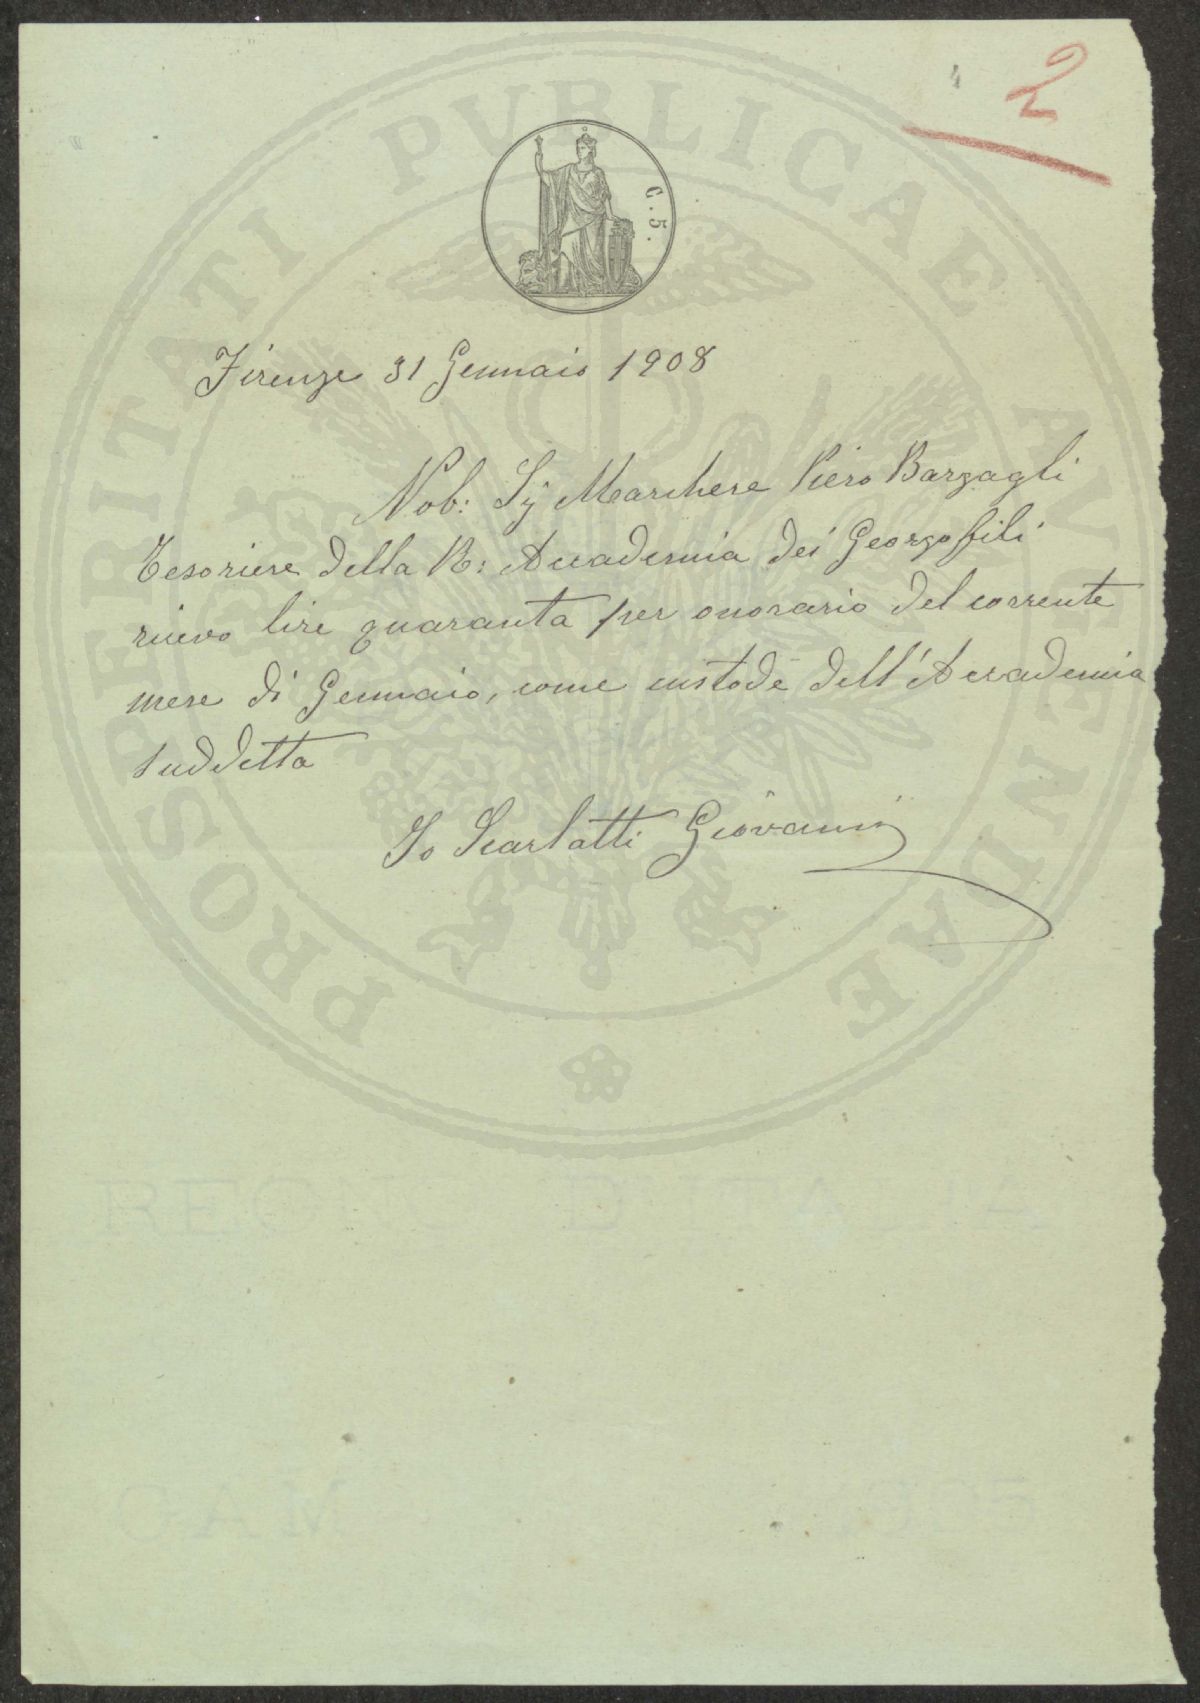 2
C. 5.
Firenze 31 Gennaio 1908
Nob: Sig Marchese Piero Bargagli
Tesoriere della R: Accademia dei Georgofili
ricevo lire quaranta per onorario del corrente
mese di Gennaio, come custode dell'Accademia
suddetta
Io Scarlatti Giovanni
PROSPERITATI PUBLICAE AUGENDAE
REGNO D'ITALIA